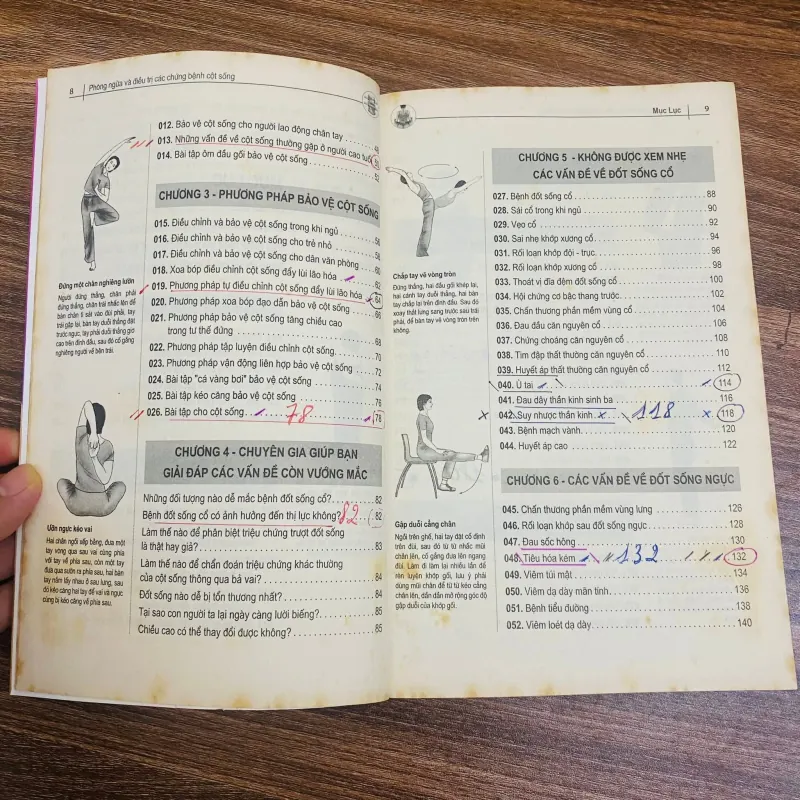 8 Phòng ngừa và điều trị các chứng bệnh cột sống
012. Bảo vệ cột sống cho người lao động chân tay
013. Những vấn đề về cột sống thường gặp ở người cao tuổi
014. Bài tập ôm đầu gối bảo vệ cột sống 52
CHƯƠNG 3 - PHƯƠNG PHÁP BẢO VỆ CỘT SỐNG
015. Điều chỉnh và bảo vệ cột sống trong khi ngủ 56
016. Điều chỉnh và bảo vệ cột sống cho trẻ nhỏ 58
017. Điều chỉnh và bảo vệ cột sống cho dân văn phòng 60
018. Xoa bóp điều chỉnh cột sống đẩy lùi lão hóa 62
019. Phương pháp tự điều chỉnh cột sống đẩy lùi lão hóa 64
020. Phương pháp xoa bóp đạo dẫn bảo vệ cột sống 66
021. Phương pháp bảo vệ cột sống tăng chiều cao
trong tư thế đứng 68
022. Phương pháp tập luyện điều chỉnh cột sống 70
023. Phương pháp vận động liên hợp bảo vệ cột sống 72
024. Bài tập "cá vàng bơi" bảo vệ cột sống 74
025. Bài tập kéo căng bảo vệ cột sống 76
026. Bài tập cho cột sống 78 78
CHƯƠNG 4 - CHUYÊN GIA GIÚP BẠN
GIẢI ĐÁP CÁC VẤN ĐỀ CÒN VƯỚNG MẮC
Những đối tượng nào dễ mắc bệnh đốt sống cổ? 82
Bệnh đốt sống cổ có ảnh hưởng đến thị lực không? 82 82
Làm thế nào để phân biệt triệu chứng trượt đốt sống
là thật hay giả? 83
Làm thế nào để chẩn đoán triệu chứng khác thường
của cột sống thông qua bả vai? 84
Đốt sống nào dễ bị tổn thương nhất? 84
Tại sao con người ta lại ngày càng lười biếng? 85
Chiều cao có thể thay đổi được không? 85
Đứng một chân nghiêng lườn
Người đứng thẳng, chân phải
đứng thẳng, chân trái nhấc lên để
bàn chân tì sát vào đùi phải, tay
trái gập lại, bàn tay duỗi thẳng giơ
trước ngực, tay phải duỗi thẳng giơ
cao trên đỉnh đầu, sau đó cố gắng
nghiêng người về bên trái.
Ưỡn ngực kéo vai
Hai chân ngồi xếp bằng, đưa một
tay vòng qua sau vai cùng phía
với tay về phía sau, còn một tay
đưa qua sườn ra phía sau, hai bàn
tay nắm lấy nhau ở sau lưng, sau
đó kéo căng hai tay để vai và ngực
cũng bị kéo căng về phía sau.
Mục Lục 9
CHƯƠNG 5 - KHÔNG ĐƯỢC XEM NHẸ
CÁC VẤN ĐỀ VỀ ĐỐT SỐNG CỔ
027. Bệnh đốt sống cổ 88
028. Sái cổ trong khi ngủ 90
029. Vẹo cổ 92
030. Sai nhẹ khớp xương cổ 94
031. Rối loạn khớp đội - trục 96
032. Rối loạn khớp xương cổ 98
033. Thoát vị đĩa đệm đốt sống cổ 100
034. Hội chứng cơ bậc thang trước 102
035. Chấn thương phần mềm vùng cổ 104
036. Đau đầu căn nguyên cổ 106
037. Chứng choáng căn nguyên cổ 108
038. Tim đập thất thường căn nguyên cổ 110
039. Huyết áp thất thường căn nguyên cổ 112
040. Ù tai 114
041. Đau dây thần kinh sinh ba 116
042. Suy nhược thần kinh 118 118
043. Bệnh mạch vành 120
044. Huyết áp cao 122
CHƯƠNG 6 - CÁC VẤN ĐỀ VỀ ĐỐT SỐNG NGỰC
045. Chấn thương phần mềm vùng lưng 126
046. Rối loạn khớp sau đốt sống ngực 128
047. Đau sốc hông 130
048. Tiêu hóa kém 132 132
049. Viêm túi mật 134
050. Viêm dạ dày mãn tính 136
051. Bệnh tiểu đường 138
052. Viêm loét dạ dày 140
Chắp tay vẽ vòng tròn
Đứng thẳng, hai đầu gối khép lại,
hai cánh tay duỗi thẳng, hai bàn
tay chắp lại trên đỉnh đầu. Sau đó
xoay thắt lưng sang trước sau trái
phải, để bàn tay vẽ vòng tròn trên
không.
Gập duỗi cẳng chân
Ngồi trên ghế, hai tay đặt cố định
trên đùi, sau đó từ từ nhấc mũi
chân lên, cố gắng đưa lên ngang
với đùi. Làm đi làm lại nhiều lần để
rèn luyện khớp gối, lưu ý phải
dùng mũi chân để từ từ kéo cẳng
chân lên, dần dần mở rộng góc độ
gập duỗi của khớp gối.